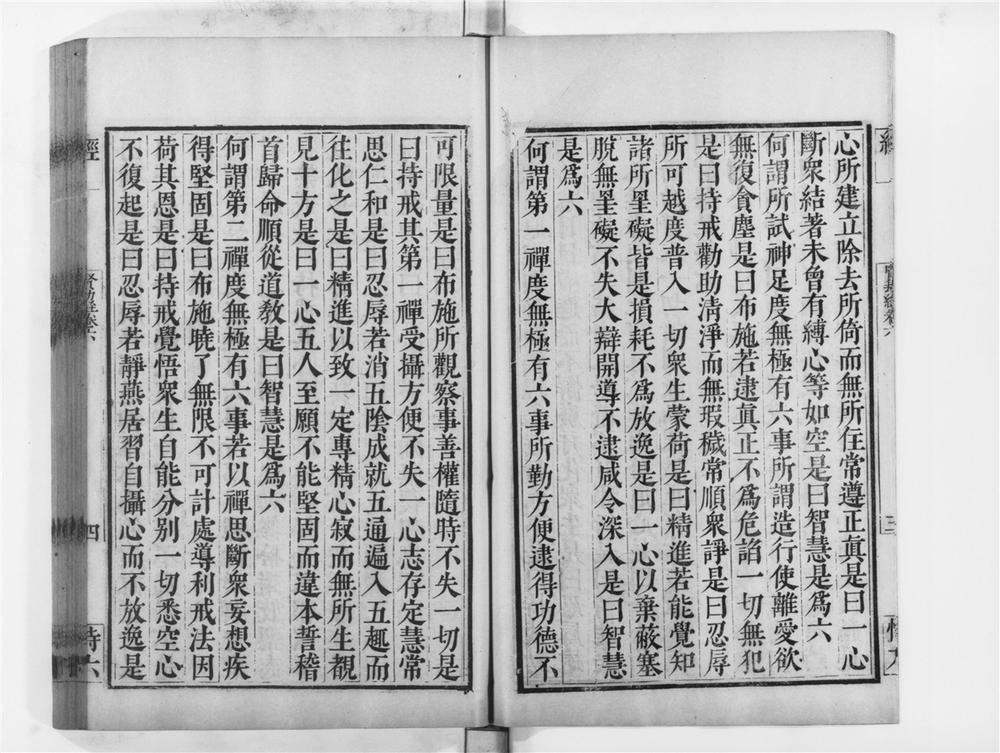 心所建立除去所倚而無所住常遵正真是曰一心
斷衆結著未曾有縛心等如空是曰智慧是為六
何謂所試神足度無極有六事所謂造行使離愛欲
無復貪塵是曰布施若逮真正不為危諂一切無犯
是曰持戒勸助清淨而無瑕穢常順衆諍是曰忍辱
所可越度普入一切衆生蒙荷是曰精進若能覺知
諸所罣礙皆是損耗不為放逸是曰一心以棄蔽塞
脫無罣礙不失大辯開導不逮咸令深入是曰智慧
是為六
何謂第一禪度無極有六事所勤方便逮得功德不
可限量是曰布施所觀察事善權隨時不失一切是
曰持戒其第一禪受攝方便不失一心志存定慧常
思仁和是曰忍辱若消五陰成就五通遍入五趣而
往化之是曰精進以致一定專精心寂而無所生覩
見十方是曰一心五人至願不能堅固而違本誓稽
首歸命順從道教是曰智慧是為六
何謂第二禪度無極有六事若以禪思斷衆妄想疾
得堅固是曰布施曉了無限不可計處導利戒法因
荷其恩是曰持戒覺悟衆生自能分別一切悉空心
不復起是曰忍辱若靜燕居習自攝心而不放逸是
經
賢劫經卷六
四